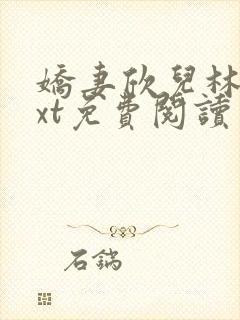 嬌妻欣兒林
xt免費閱讀
石鎬